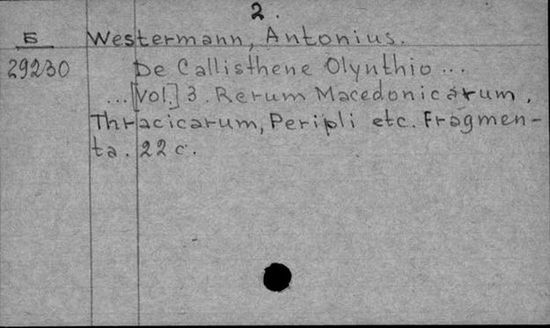 2.
Б Westermann, Antonius.
29230 De Callisthene Olynthio ...
... [Vol.] 3. Rerum Macedonicarum,
Thracicarum, Peripli etc. Fragmen-
ta. 22 c.